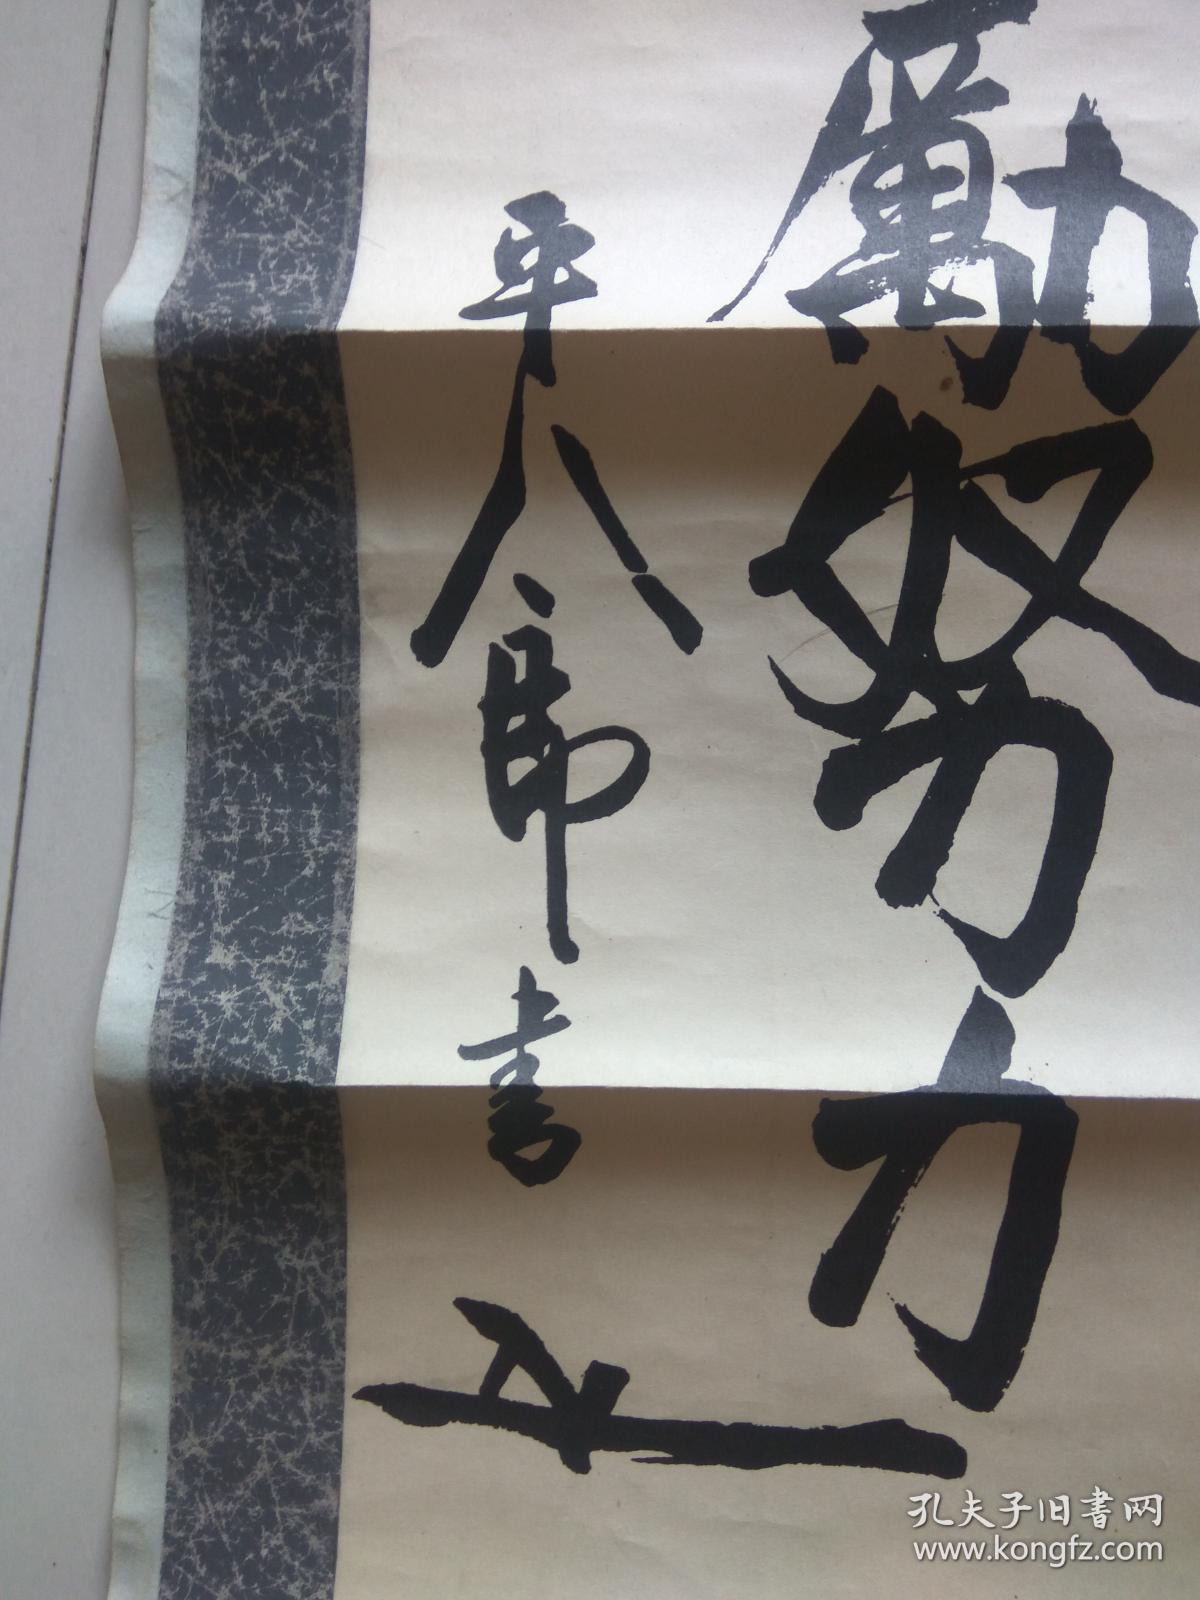 勵努力
平八郎書
孔夫子旧書网
www.kongfz.com